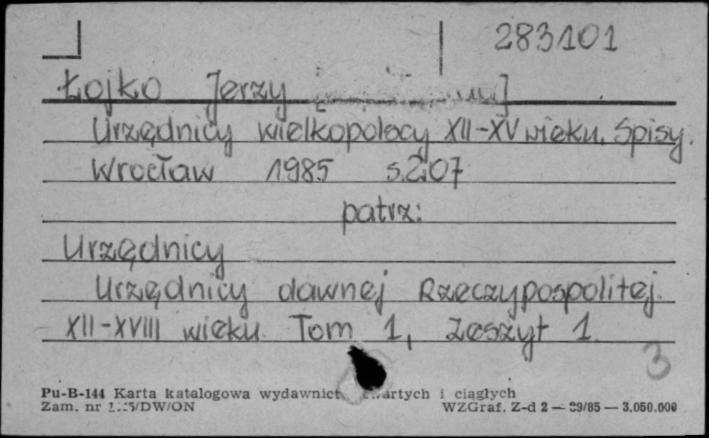 283101
Łojko Jerzy
Urzędnicy wielkopolscy XII-XV wieku. Spisy.
Wrocław 1985 s.207
patrz:
Urzędnicy
Urzędnicy dawnej Rzeczypospolitej.
XII-XVIII wieku. Tom 1, Zeszyt 1.
3
Pu-B-144 Karta katalogowa wydawnictw zwartych i ciągłych
Zam. nr /DW/ON WZGraf. Z-d 2 — 39/85 — 3.050.000